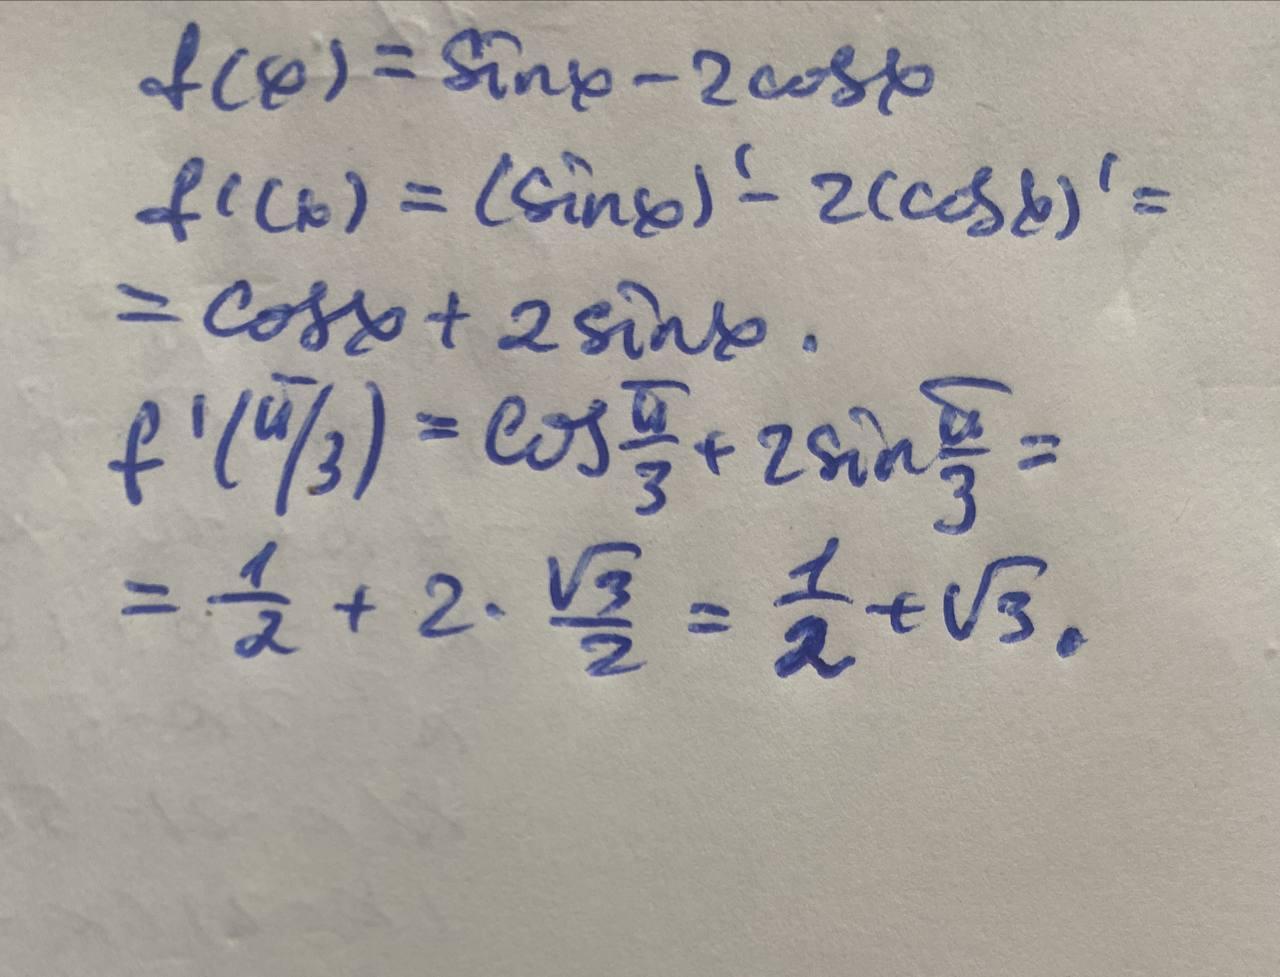 f(x) = sinx - 2cosx
f'(x) = (sinx)' - 2(cosx)' =
= cosx + 2sinx.
f'(π/3) = cos π/3 + 2sin π/3 =
= 1/2 + 2 · √3/2 = 1/2 + √3.